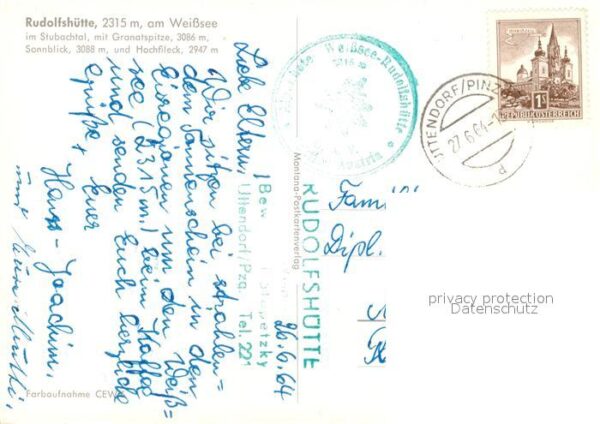 Rudolfshütte, 2315 m, am Weißsee
im Stubachtal, mit Granatspitze, 3086 m,
Sonnblick, 3088 m, und Hochfileck, 2947 m
Liebe Eltern!
Wir sitzen bei strahlen=
dem Sonnenschein in den
Eisregionen um den Weiß=
see (2315 m) beim Kaffee
und senden Euch herzliche
Grüße
Euer
Hans-Joachim.
26.6.64
Weißsee-Rudolfshütte
Bew
Uttendorf/Pzg. Tel. 221
RUDOLFSHÜTTE
Montana-Postkartenverlag
Farbaufnahme CEW
Fami
Dipl.
UTTENDORF/PINZ
27.6.64
REPUBLIK ÖSTERREICH
1S
privacy protection
Datenschutz